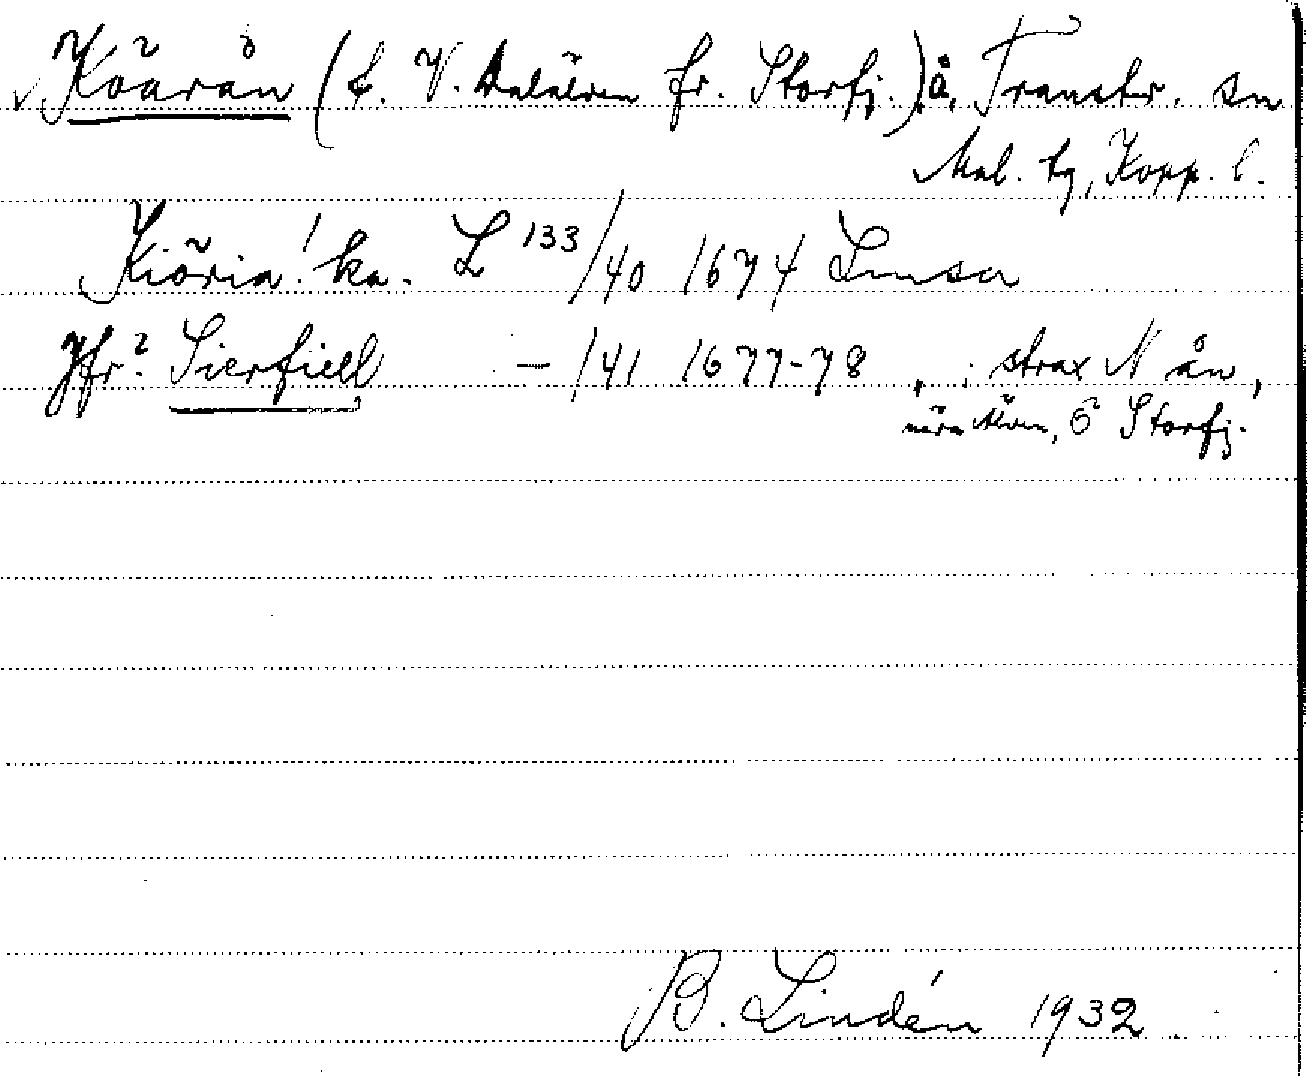 Köarån (t. V. Dalälven fr. Storfj.) å, Transtr. sn
Mal. tg, Kopp. l.
Kiöria! ka. L 133/40 1674 Limsa
Jfr? Sierfiell — /41 1677-78 „ : strax N ån,
nära älven, Ö Storfj.
B. Lindén 1932